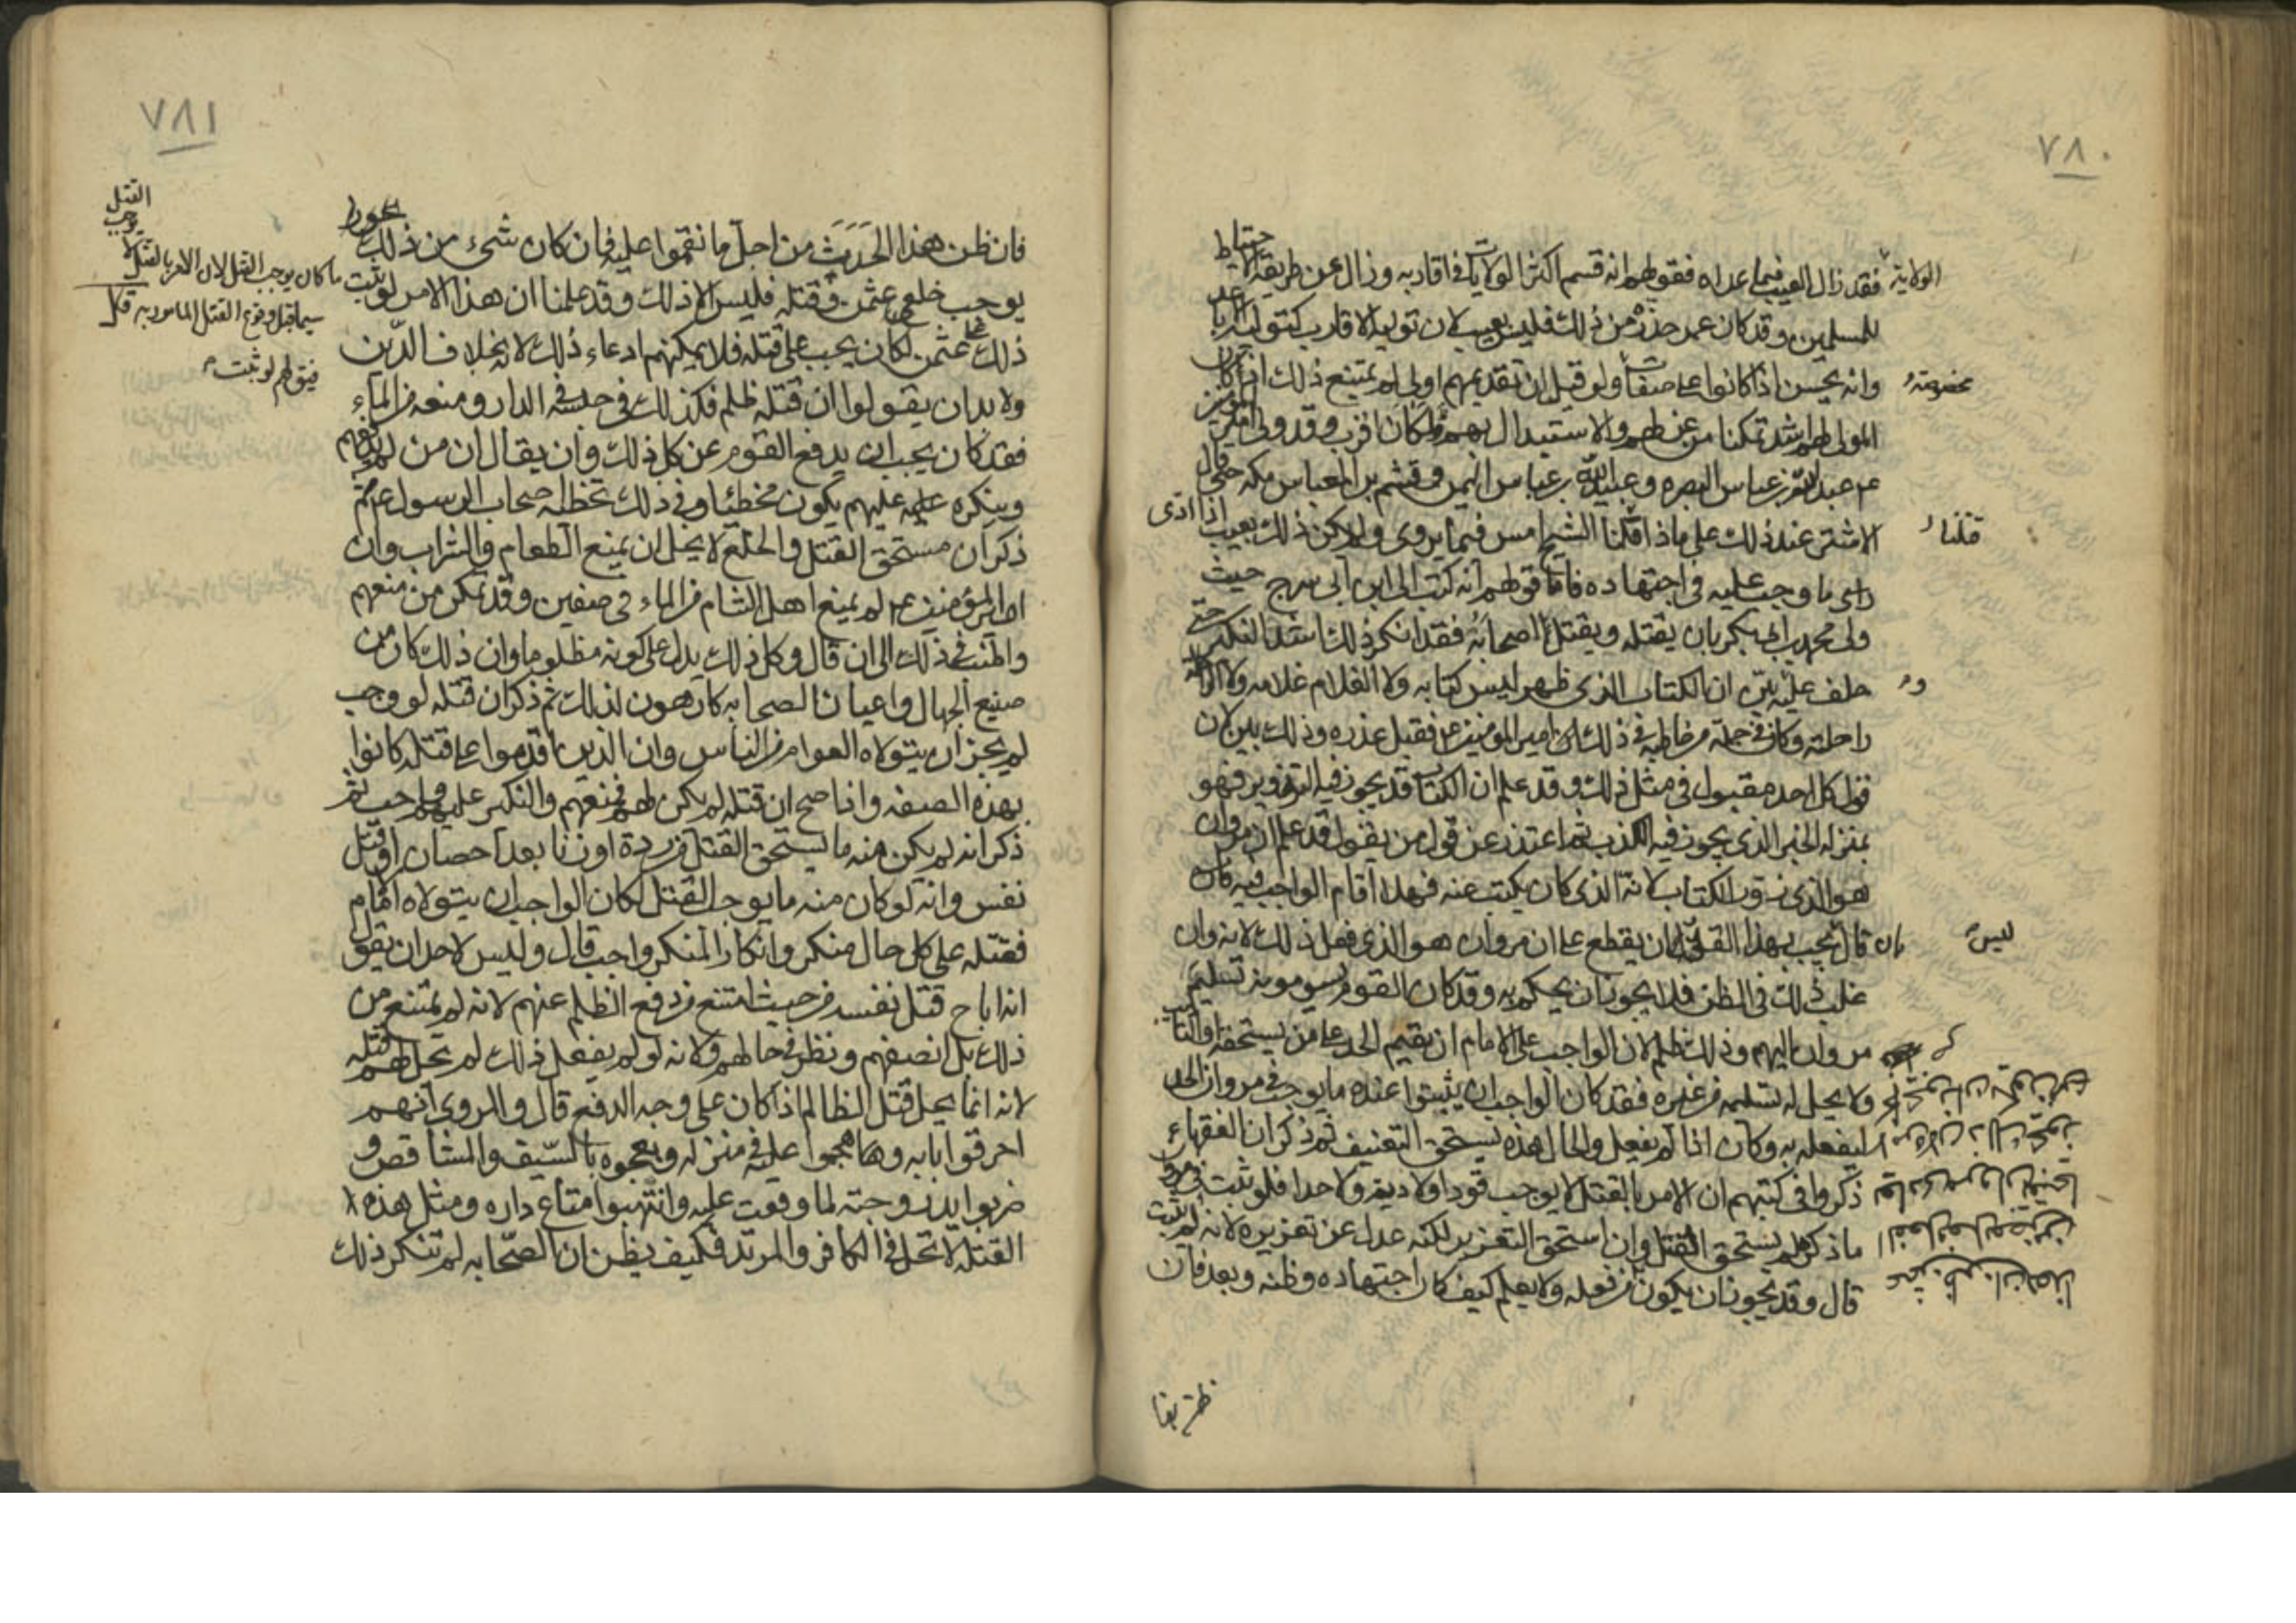 ٧٨٠
الولاية فقد زال العيب فيما عداه فقولهم انه قسم اكثر الولايات في اقاربه وزال عن طريقة الاحتياط
للمسلمين وقد كان عمر حذره من ذلك فليس بعيب لان تولية الاقارب كتولية الاباعد
وانه يحسن اذا كانوا على صفات مخصوصة ولو قيل ان تقديمهم اولى لم يمتنع ذلك اذا كان
المولى لهم اشد تمكنا من عزلهم والاستبدال بهم لمكان اقرب وقد ولى امير المؤمنين
ع م عبد الله بن عباس البصره وعبيد الله بن عباس اليمن وقثم بن العباس مكه حتى قال
الاشتر عند ذلك على ماذا قتلنا الشيخ امس فيما يروى ولم يكن ذلك بعيب اذا ادى
راى ما وجب عليه في اجتهاده فاما قولهم انه كتب الى ابن ابي سرح حيث
ولى محمد بن ابي بكر بان يقتله ويقتل اصحابه فقد انكر ذلك اشد النكير حتى
حلف عليه وبين ان الكتاب الذي ظهر ليس كتابه ولا الغلام غلامه ولا الراحلة
راحلته وكان في جملة من خاطبه في ذلك امير المؤمنين ع م فقبل عذره وذلك بين لان
قول كل احد مقبول في مثل ذلك وقد علم ان الكتاب قد يجوز فيه التزوير فهو
بمنزله الخبر الذي يجوز فيه الكذب ثم اعتذر عن قول من يقول قد علم ان مروان
هو الذي زور الكتاب لانه الذي كان يكتب عنه فهلا اقام الواجب فيه بان
قال ليس يجب بهذا القدر ان يقطع على ان مروان هو الذي فعل ذلك لانه وان
غلب ذلك في الظن فلا يجوز ان يحكم به وقد كان القوم يسومونه تسليم
مروان اليهم وذلك ظلم لان الواجب على الامام ان يقيم الحد على من يستحقه او التاديب
ولا يحل له تسليمه من غيره فقد كان الواجب ان يثبتوا عنده ما يوجب في مروان الحد
ليفعله به وكان اذا لم يفعل والحال هذه يستحق التعنيف ثم ذكر ان الفقهاء
ذكروا في كتبهم ان الامر بالقتل لا يوجب قودا ولا دية ولا حدا فلو ثبت في مروان
ما ذكر لم يستحق القتل وان استحق التعزير لكنه عدل عن تعزيره لانه لم يثبت
قال وقد يجوز ان يكون من فعله ولا يعلم كيف كان اجتهاده وظنه وبعد فان
٧٨١
فان ظن هذا الحدث من اجل ما نقموا عليه فان كان شيء من ذلك
يوجب خلع عثمن وقتله فليس الا ذلك وقد علمنا ان هذا الامر لو ثبت
ما كان يوجب القتل لان الامر بالقتل لا يوجب القتل
سيما قبل وقوع القتل المامور به
فيق لهم لو ثبت
ذلك على عثمن لكان يجب على قتله فلا يمكنهم ادعاء ذلك لانه بخلاف الدين
ولا بد ان يقولوا ان قتله ظلم فكذلك في حبسه في الدار ومنعه من الماء
فقد كان يجب ان يدفع القوم عن كل ذلك وان يقال ان من لم يدفعهم
وينكره عليهم يكون مخطئا وفي ذلك تخطئه اصحاب الرسول ع م ثم
ذكر ان مستحق القتل والخلع لا يحل ان يمنع الطعام والشراب وان
امير المؤمنين ع م لم يمنع اهل الشام من الماء في صفين وقد تمكن من منعهم
واطنب في ذلك الى ان قال وكل ذلك يدل على كونه مظلوما وان ذلك كان من
صنيع الجهال واعيان الصحابه كارهون لذلك ثم ذكر ان قتله لو وجب
لم يجز ان يتولاه العوام من الناس وان الذين اقدموا على قتله كانوا
بهذه الصفه واذا صح ان قتله لم يكن لهم فمنعهم والنكير عليهم واجب ثم
ذكر انه لم يكن منه ما يستحق القتل من ردة او زنا بعد احصان او قتل
نفس وانه لو كان منه ما يوجب القتل لكان الواجب ان يتولاه الامام
فقتله على كل حال منكر وانكار المنكر واجب قال وليس لاحد ان يقول
انه اباح قتل نفسه من حيث امتنع من دفع الظلم عنهم لانه لم يمتنع من
ذلك بل انصفهم ونظر في حالهم ولانه لو لم يفعل ذلك لم يحل لهم قتله
لانه انما يحل قتل الظالم اذا كان على وجه الدفع قال والمروي انهم
احرقوا بابه وهجموا عليه في منزله وبعجوه بالسيف والمشاقص و
ضربوا يد زوجته لما وقعت عليه وانتهبوا متاع داره ومثل هذه
القتله لا تحل في الكافر والمرتد فكيف يظن ان الصحابه لم تنكر ذلك